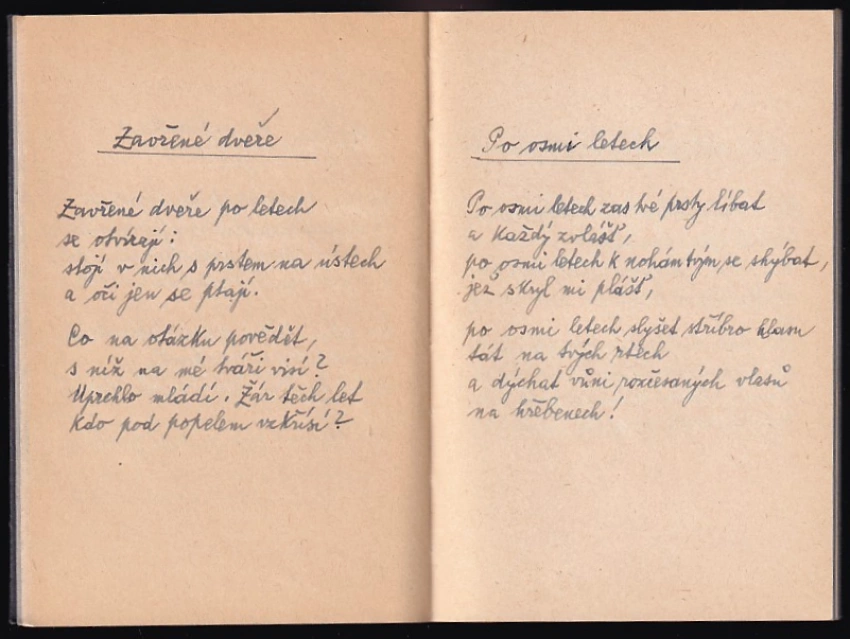 Zavřené dveře
Zavřené dveře po letech
se otvírají:
stojí v nich s prstem na ústech
a oči jen se ptají.
Co na otázku povědět,
s níž na mé tváři visí?
Uprchlo mládí. Žár těch let
kdo pod popelem vzkřísí?
Po osmi letech
Po osmi letech zas tvé prsty líbat
a každý zvlášť,
po osmi letech k nohám tvým se shýbat,
jež skryl mi plášť,
po osmi letech slyšet stříbro hlasu
tát na tvých rtech
a dýchat vůni rozčesaných vlasů
na hřebenech!